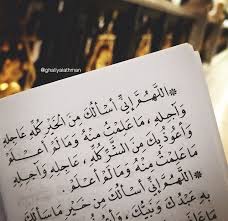 @ghaliyaiathman
*اللَّهُمَّ إِنِّي أَسْأَلُكَ مِنَ الْخَيْرِ كُلِّهِ عَاجِلِهِ
وَآجِلِهِ، مَا عَلِمْتُ مِنْهُ وَمَا لَمْ أَعْلَمْ
وَأَعُوذُ بِكَ مِنَ الشَّرِّ كُلِّهِ، عَاجِلِهِ وَآجِلِهِ
مَا عَلِمْتُ مِنْهُ وَمَا لَمْ أَعْلَمُ.
*اللَّهُمَّ إِنِّي أَسْأَلُكَ مِنْ خَيْرِ مَا سَأَلَكَ
بِهِ عَبْدُكَ وَنَبِيُّكَ، وَأَعُوذُ